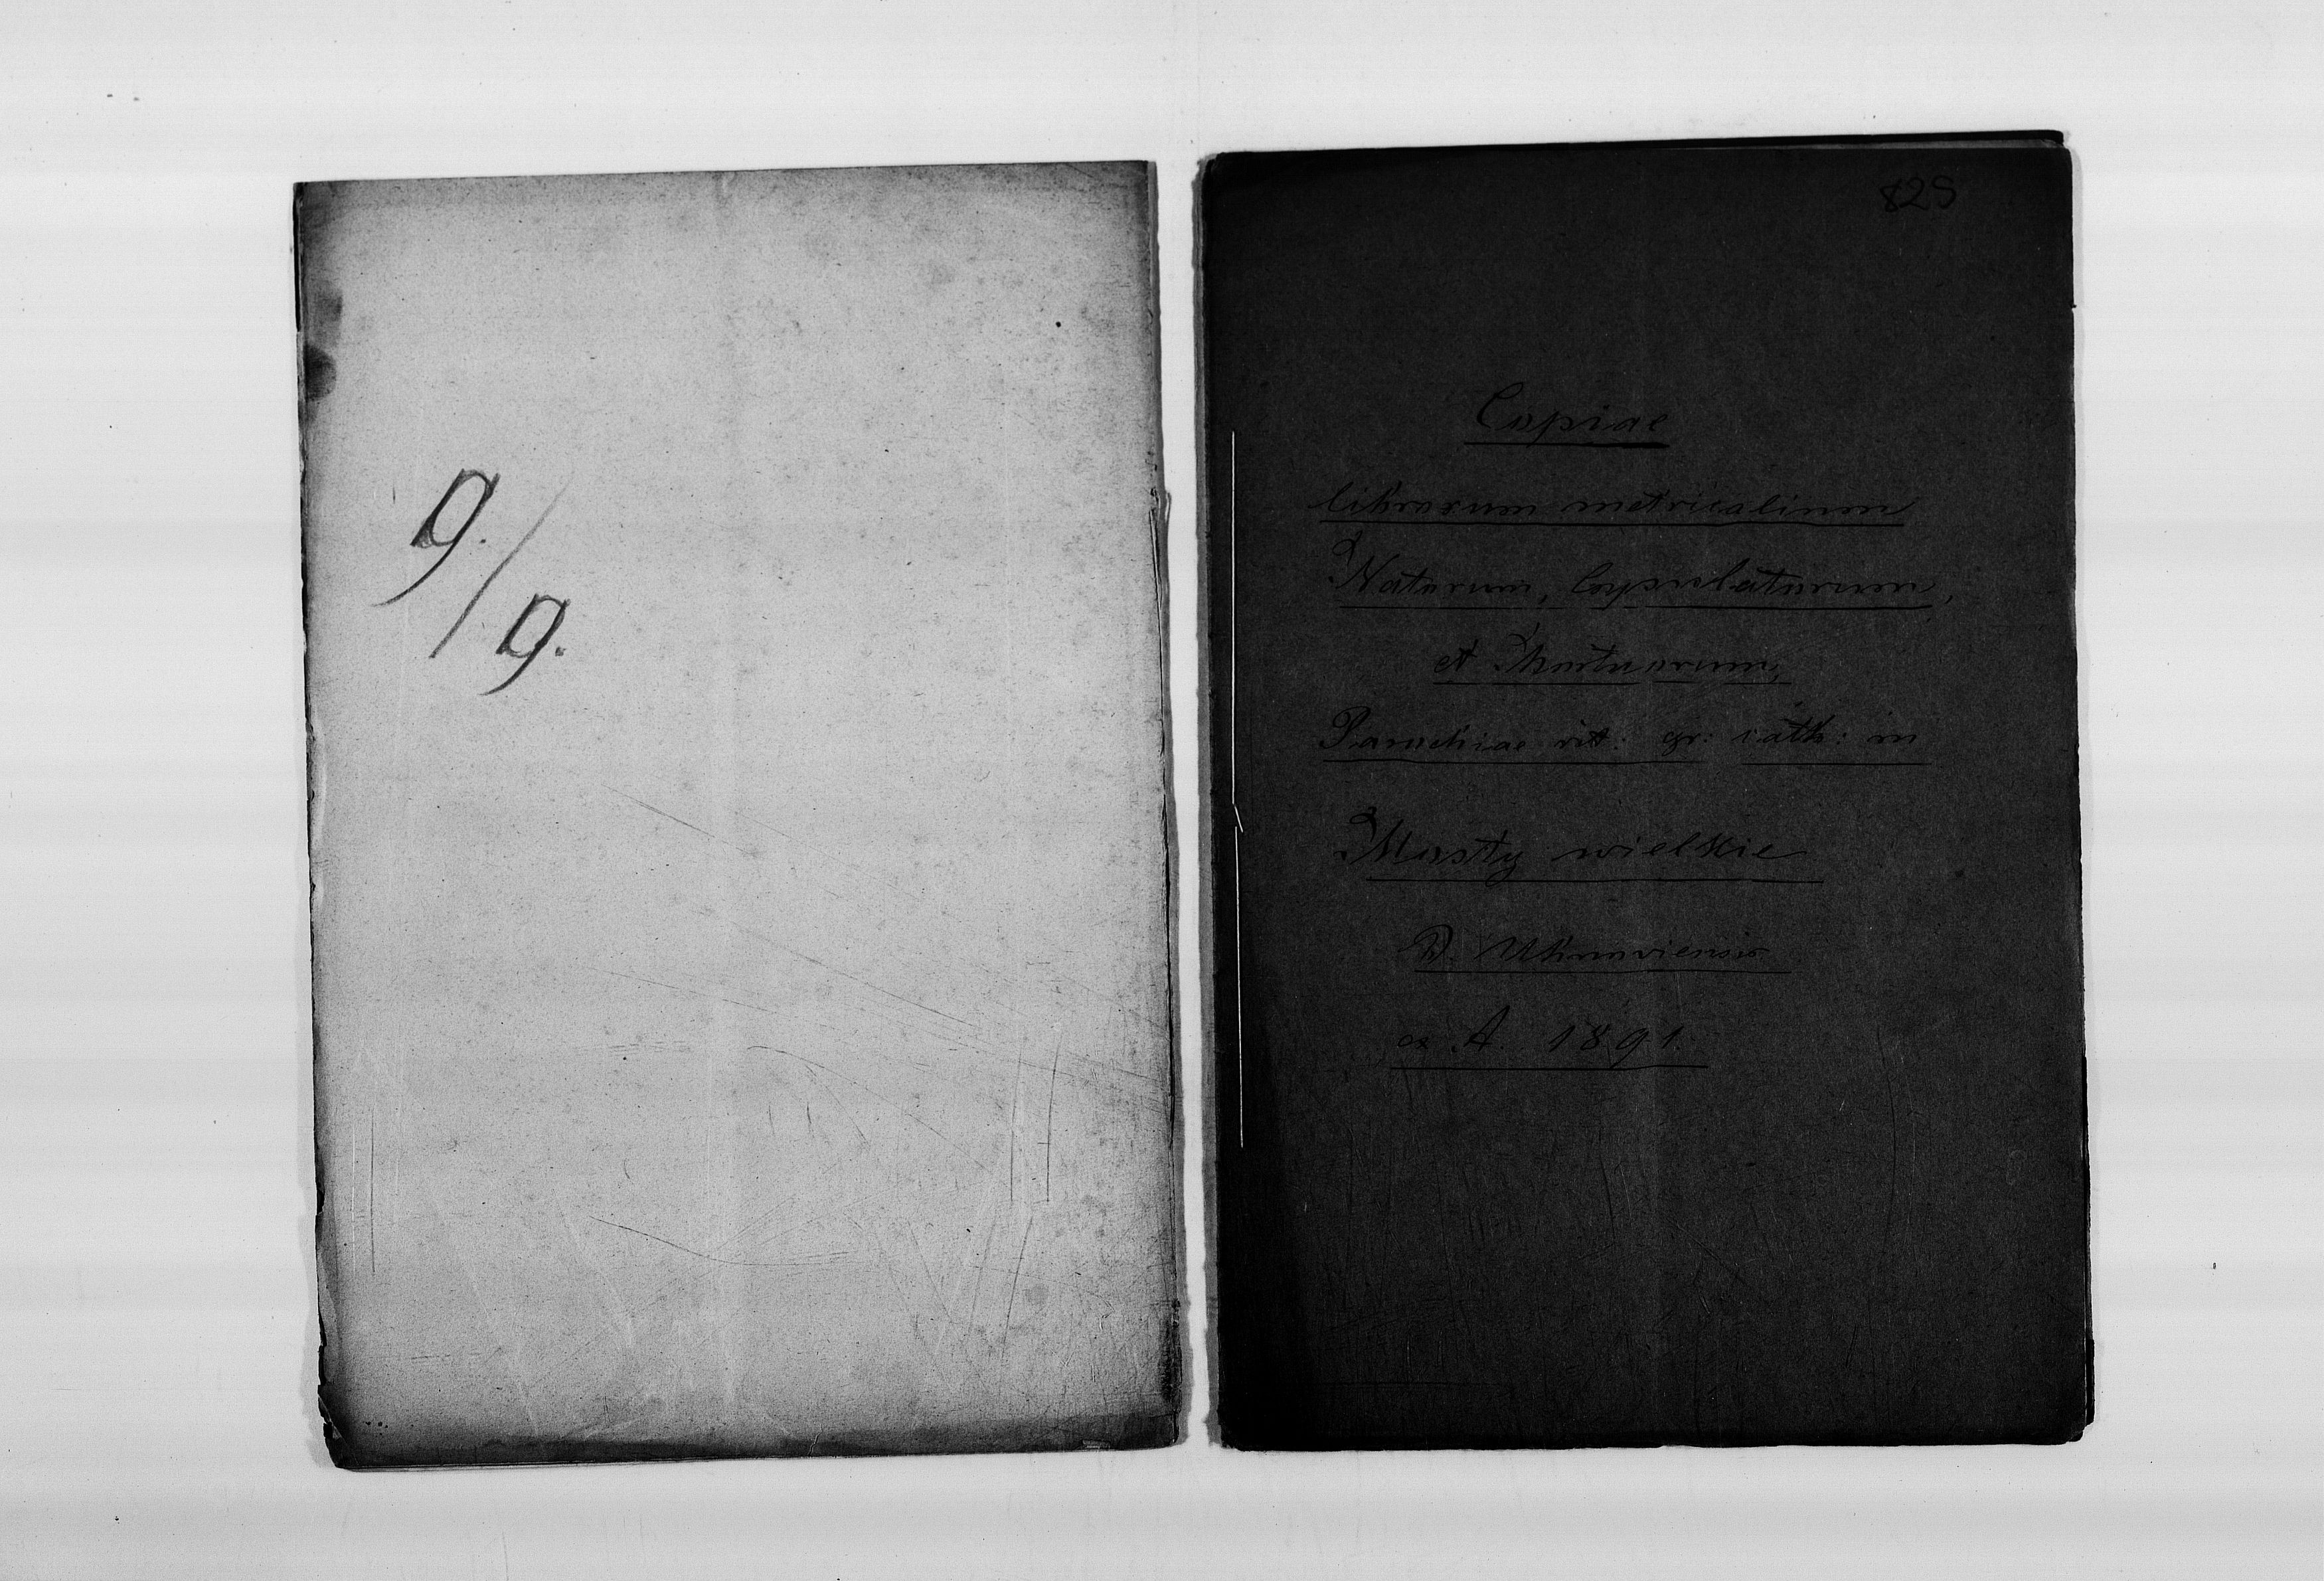 9./9.
825
Copiae
librorum metricalium
Natorum, Copulatorum,
et Mortuorum,
Parochiae rit: gr: cath: in
Mosty wielkie
D. Uhnoviensis
ex A. 1891.